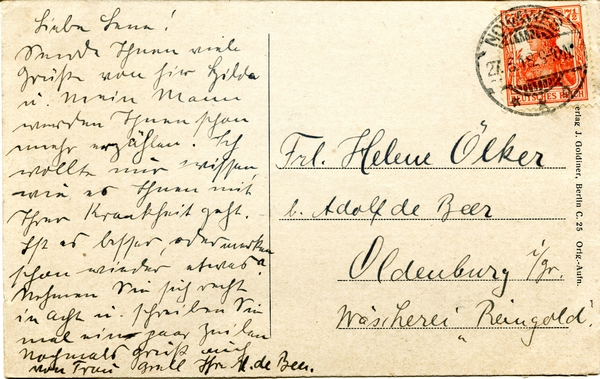 Liebe Lene!
Sende Ihnen viele
Grüße von hier Hilda
u. Mein Mann
werden Ihnen schon
mehr erzählen. Ich
wollte nur wissen,
wie es Ihnen mit
Ihrer Krankheit geht.
Ist es besser, oder merken
schon wieder etwas?
Nehmen Sie sich recht
in acht u. schreiben Sie
mal ein paar Zeilen
Nochmals Gruß auch
von Frau Ihre A. de Beer.
NOWAWES
DEUTSCHES REICH
7½
Frl. Helene Ölker
b. Adolf de Beer
Oldenburg i/Gr.
Wäscherei „Reingold".
erlag J. Goldiner, Berlin C. 25 Orig.-Aufn.